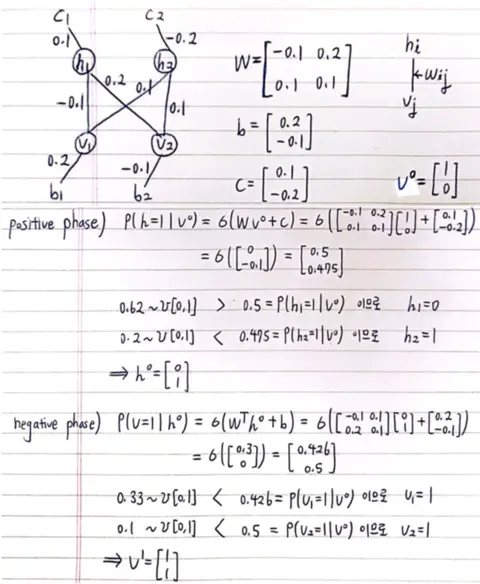 C1 C2
0.1 -0.2
h1 h2
0.2 0.1
-0.1 0.1
V1 V2
0.2 -0.1
b1 b2
W = [-0.1 0.2
0.1 0.1]
hi
←Wij
Vj
b = [0.2
-0.1]
C = [0.1
-0.2]
V⁰ = [1
0]
positive phase) P(h=1|V⁰) = σ(WV⁰+C) = σ([-0.1 0.2; 0.1 0.1][1; 0]+[0.1; -0.2])
= σ([0; -0.1]) = [0.5; 0.475]
0.62~U[0,1] > 0.5 = P(h1=1|V⁰) 이므로 h1=0
0.2~U[0,1] < 0.475 = P(h2=1|V⁰) 이므로 h2=1
⇒ h⁰=[0; 1]
negative phase) P(V=1|h⁰) = σ(Wᵀh⁰+b) = σ([-0.1 0.1; 0.2 0.1][0; 1]+[0.2; -0.1])
= σ([0.3; 0]) = [0.426; 0.5]
0.33~U[0,1] < 0.426 = P(V1=1|V⁰) 이므로 V1=1
0.1 ~U[0,1] < 0.5 = P(V2=1|V⁰) 이므로 V2=1
⇒ V¹=[1; 1]